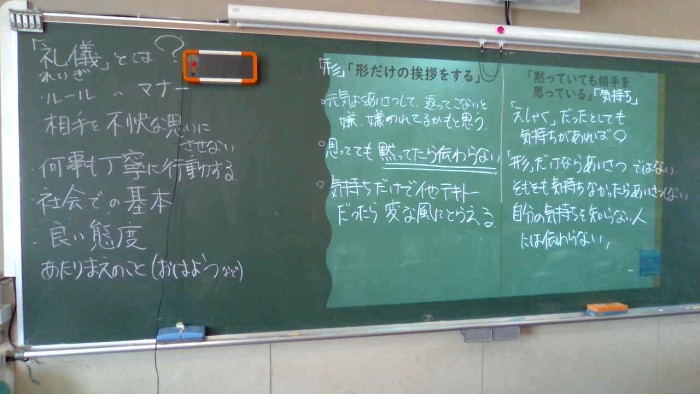 「礼儀」とは?
れいぎ
・ルール ・ マナー
相手を不快な思いに
させない
何事も丁寧に行動する
社会での基本
・良い態度
あたりまえのこと(おはようなど)
「形」「形だけの挨拶をする」
○元気よくあいさつして、返ってこないと
嫌、嫌われてるかもと思う。
○思ってても黙ってたら伝わらない
○気持ちだけで他テキトー
だったら変な風にとらえる。
「黙っていても相手を
思っている」「気持ち」
「えしゃく」だったとしても
気持ちがあれば○
「形」だけならあいさつではない。
そもそも気持ちなかったらあいさつしない
自分の気持ちを知らない人
には伝わらない。